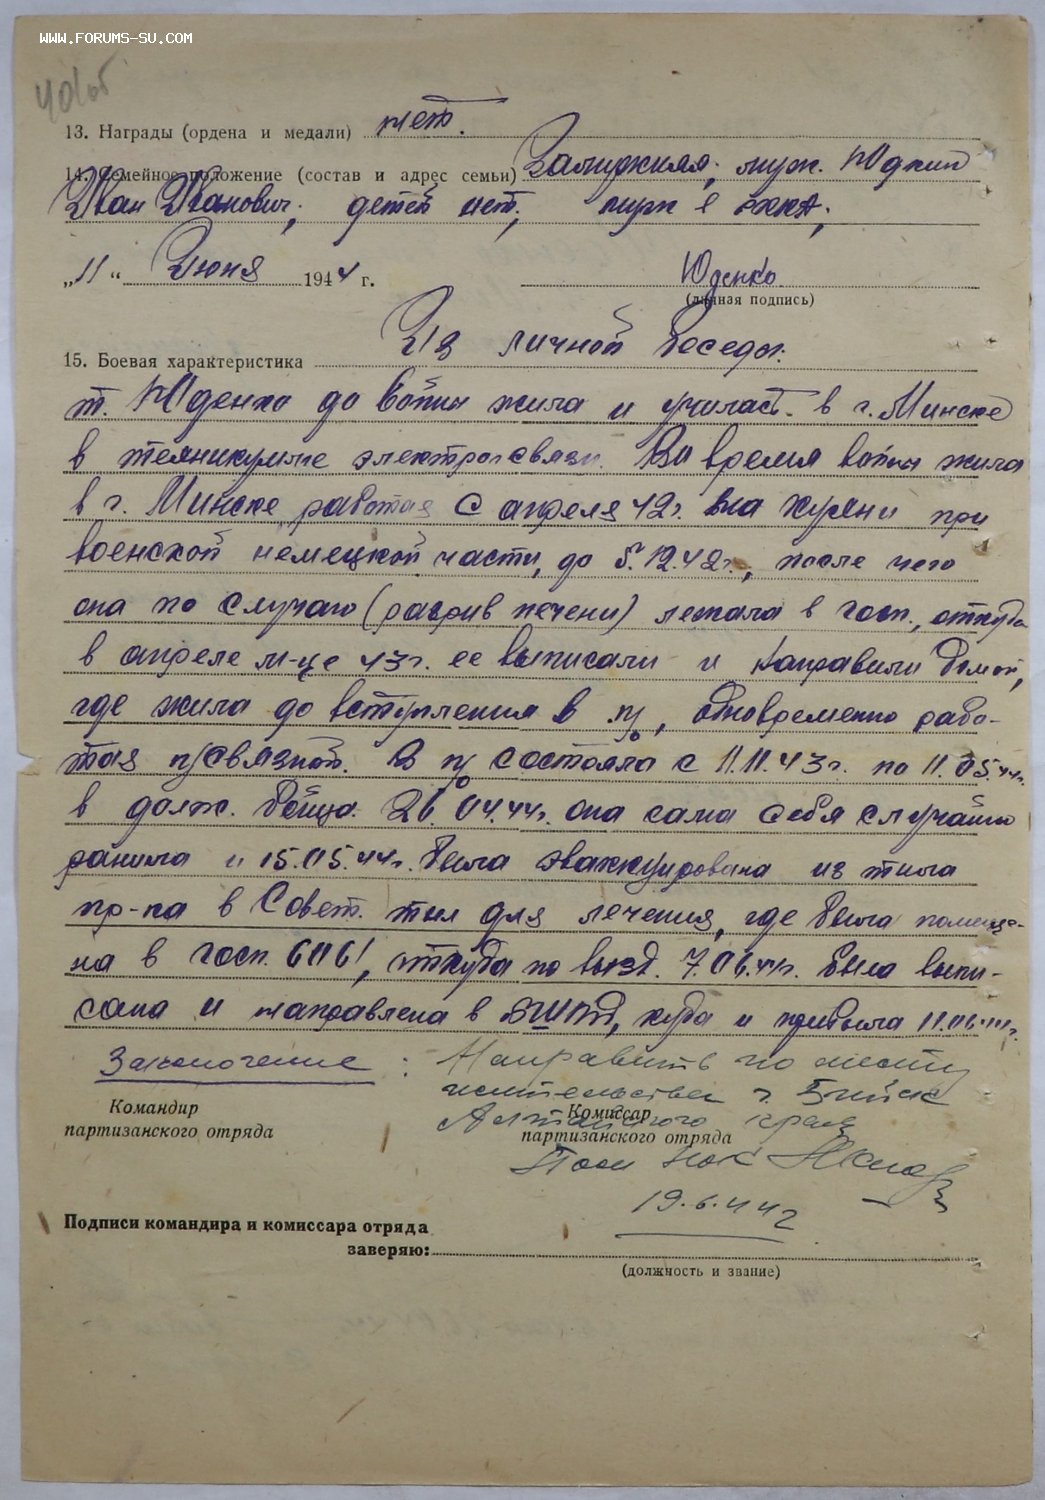 WWW.FORUMS-SU.COM
13. Награды (ордена и медали) нет.
14. Семейное положение (состав и адрес семьи) Замужняя; муж.
Иван Иванович; детей нет; муж в РККА;
„11“ Июня 1944 г. Юденко
(личная подпись)
15. Боевая характеристика Из личной беседы:
т. Юденко до войны жила и училась в г. Минске
в техникуме электросвязи. Во время войны жила
в г. Минске работая с апреля 42 г. на кухни при
воинской немецкой части, до 5.12.42 г., после чего
она по случаю (разрив печени) лежала в госп., откуда
в апреле м-це 43 г. ее выписали и направили домой,
где жила до вступления в п/о, одновременно рабо-
тая п/связной. В п/о состояла с 11.11.43 г. по 11.05.44 г.
в долж. бойца. 26.04.44 г. она сама себя случайно
ранила и 15.05.44 г. была эваккуирована из тыла
пр-ка в Совет. тыл для лечения, где была помеще-
на в госп. 6061, откуда по вызд. 7.06.44 г. была выпи-
сана и направлена в БШПД, куда и прибыла 11.06.44 г.
Заключение: Направить по месту
жительства г. Бийск
Алтайского края
Командир
партизанского отряда
Комиссар
партизанского отряда
Пом нок
19.6.44 г
Подписи командира и комиссара отряда
заверяю:
(должность и звание)